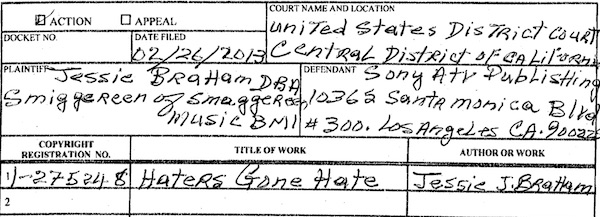 ☑ ACTION ☐ APPEAL
COURT NAME AND LOCATION
United States District Court
Central District of California
DOCKET NO.
DATE FILED
02/26/2013
PLAINTIFF
Jessie Braham DBA
Smiggereen of Smaggereen
Music BMI
DEFENDANT
Sony Atv Publishing
10365 Santa monica Blvd
# 300. Los Angeles CA.
COPYRIGHT
REGISTRATION NO.
TITLE OF WORK
AUTHOR OR WORK
Haters Gone Hate
Jessie J. Braham
2